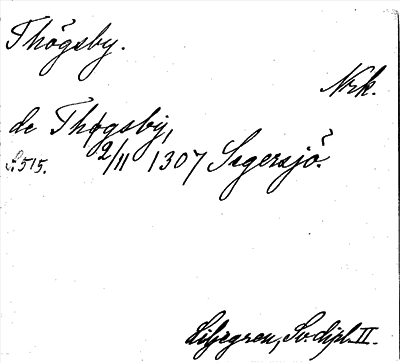 Thögsby.
Nrk.
de Thøgsby,
S. 515. 2/11 1307 Segersjö.
Liljegren, Sv. dipl. II.